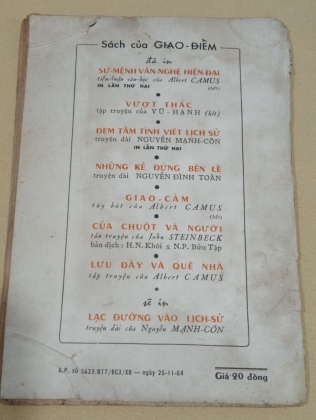 Sách của GIAO-ĐIỂM
đã in
SỨ-MỆNH VĂN-NGHỆ HIỆN-ĐẠI
tiểu-luận văn-học của Albert CAMUS
IN LẦN THỨ HAI (hết)
VƯỢT THÁC
tập truyện của VŨ-HẠNH (hết)
ĐEM TÂM TÌNH VIẾT LỊCH SỬ
truyện dài NGUYỄN MẠNH-CÔN
IN LẦN THỨ HAI
NHỮNG KẺ ĐỨNG BÊN LỀ
truyện dài NGUYỄN ĐÌNH TOÀN
GIAO-CẢM
tùy bút của Albert CAMUS
(hết)
CỦA CHUỘT VÀ NGƯỜI
tân truyện của John STEINBECK
bản dịch: H.N. Khôi & N.P. Bửu Tập
LƯU ĐẦY VÀ QUÊ NHÀ
tập truyện của Albert CAMUS
sẽ in
LẠC ĐƯỜNG VÀO LỊCH-SỬ
truyện dài của Nguyễn MẠNH-CÔN
G.P. số 3423/BTT/BC3/XB — ngày 25-11-64
Giá 20 đồng